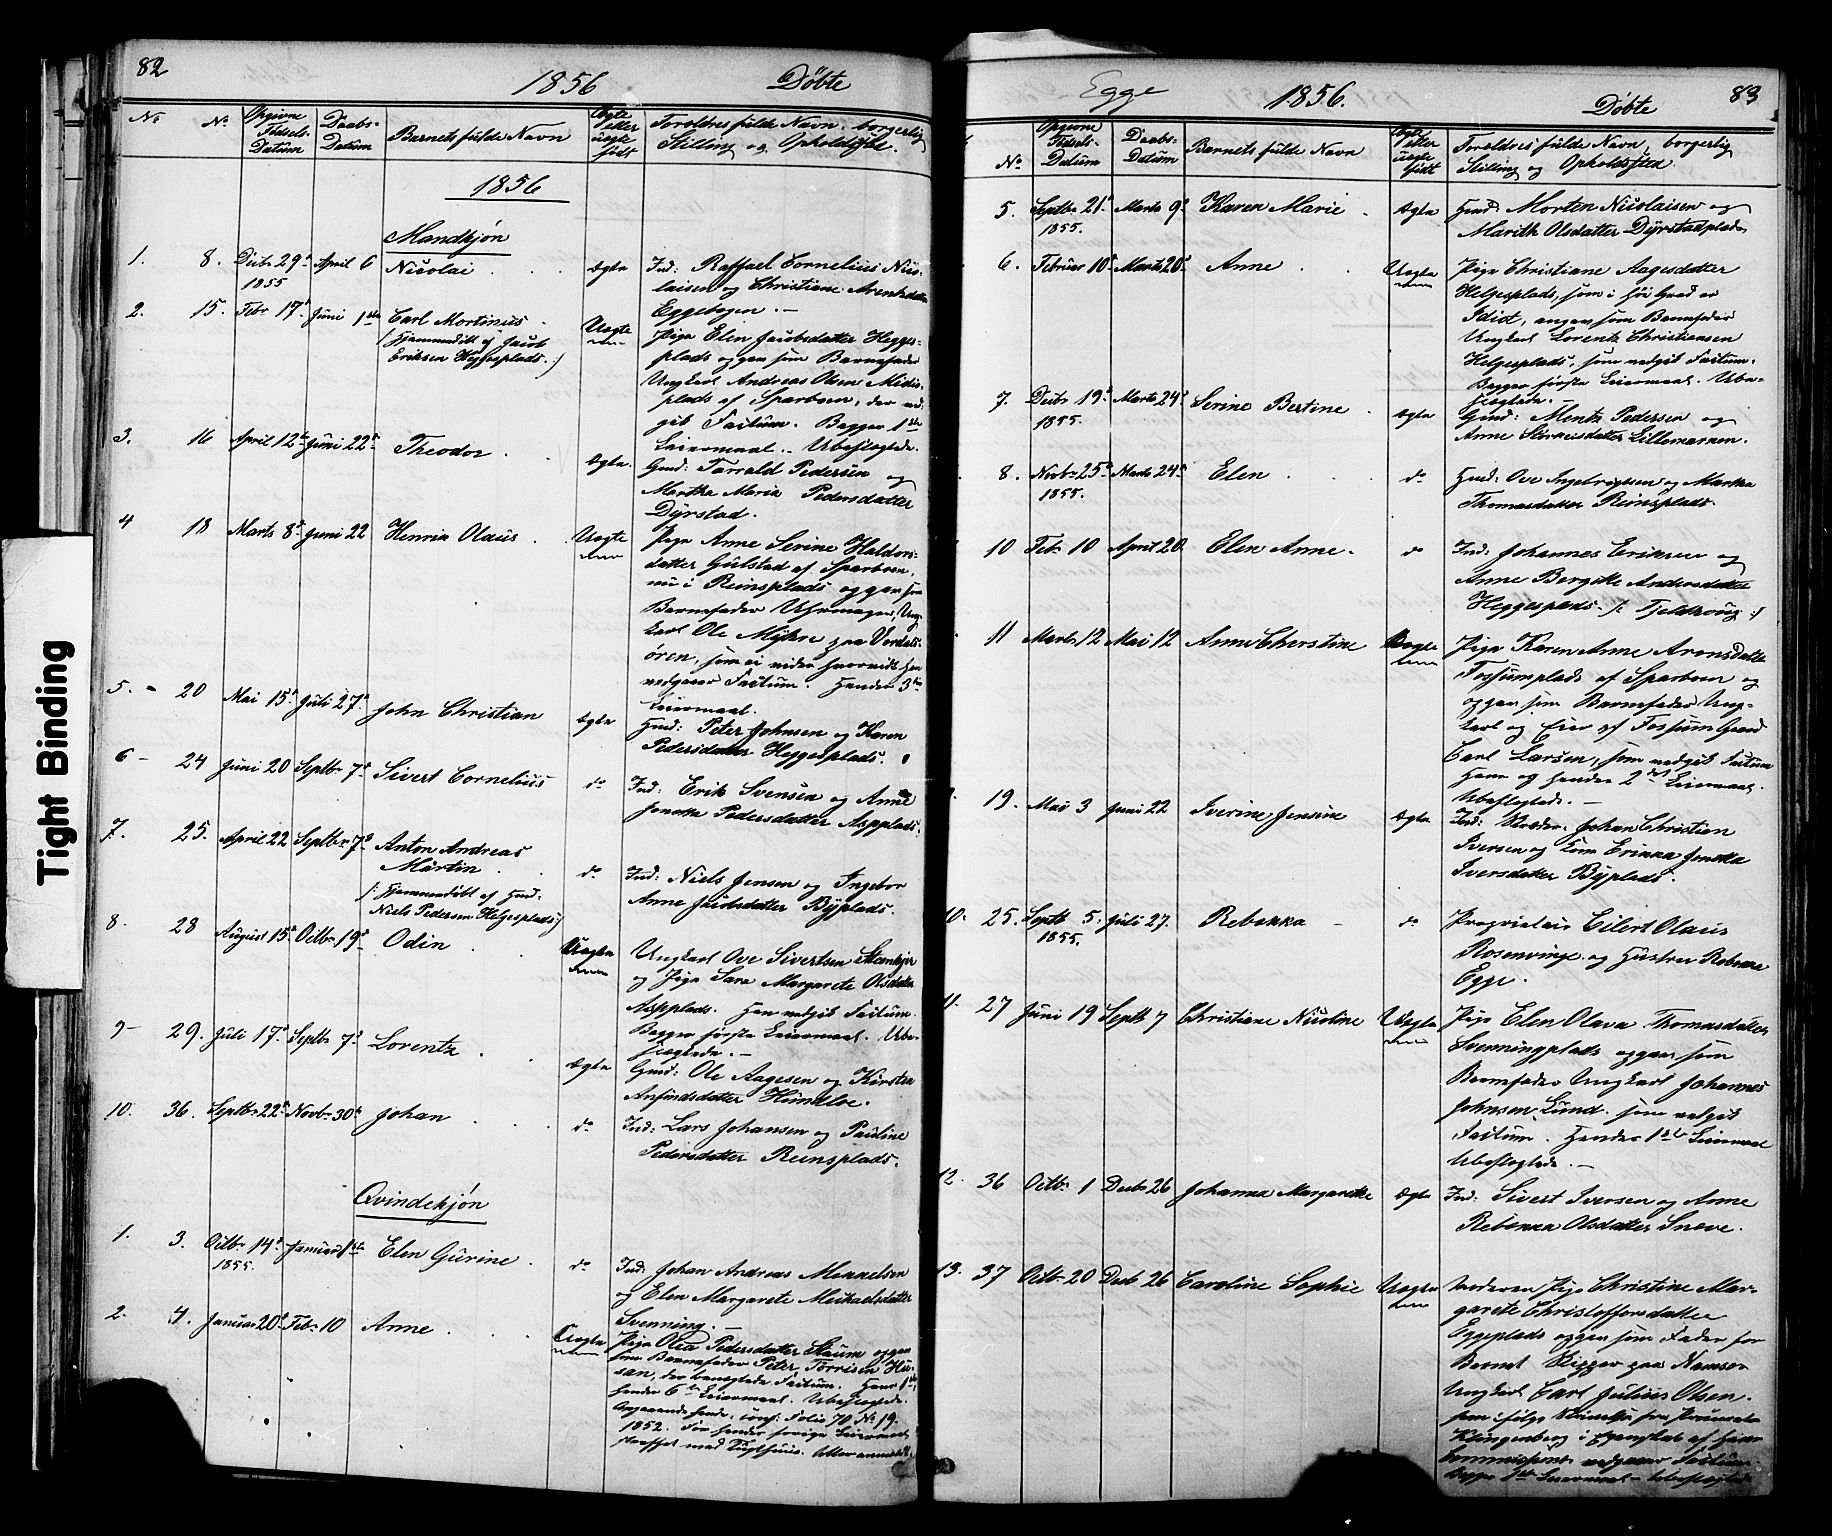 82
1856
Døbte
No
No
Opgivne Fødsels-Datum
Daabs-Datum
Barnets fulde Navn
Ægte eller uægte født
Forældres fulde Navn, borgerlig
Stilling og Opholdssted.
1856
Mandkjøn
1. 8. Decbr 29de 1855 April 6 Nicolai Ægte Ind: Raffael Cornelius Nico-
laisen og Christiane Arentsdatter
Eggebogen. —
2. 15. Febr 17de Juni 1ste Carl Mortinus Uægte Pige Elen Jacobsdatter Hegges-
(Hjemmedøbt af Jacob
Eriksen Heggesplads.)
plads opgav som Barnefader
Ungkarl Andreas Olsen
plads af Sparboen, der ved-
gik Factum. Begges 1ste
Leiermaal. Ubeslægtede.
3. 16 April 12te Juni 22de Theodor Ægte Gmd: Torvald Pedersen og
Martha Maria Pedersdatter
Dyrstad.
4 18 Marts 8de Juni 22 Henrik Olaus Uægte Pige Anne Serine Haldors-
datter Gulstad af Sparboen,
nu i Reinsplads opgav som
Barnefader Uhrmager, Ung-
karl Ole Myhre paa Verdals-
øren, som ei videre
vedgaaer Factum. Hendes 3die
Leiermaal.
5. - 20 Mai 15de Juli 27de John Christian Ægte Hmd: Peter Johnsen og Karen
Pedersdatter Heggesplads.
6 - 24 Juni 20 Septbr 7de Sivert Cornelius do Ind: Erik Svensen og Anne
Jonetta Pedersdatter Aspplads.
7. 25. April 22 Septbr 7de Anton Andreas
Martin.
(: Hjemmedøbt af Gmd:
Niels Pedersen Helgesplads:)
do Ind: Niels Jensen og Ingebor
Anne Jacobsdatter Byplads.
8. 28 August 15de Octbr 19de Odin Uægte Ungkarl Ove Sivertsen Steenkjer
og Pige Sara Margarete Olsdatter
Aspplads. Han vedgik Factum.
Begges første Leiermaal. Ube-
slægtede. —
9 - 29. Juli 17de Septbr 7de Lorentz Ægte Gmd: Ole Aagesen og Kirsten
Anfindsdatter Humdloe.
10. 36. Septbr 22de Novbr 30te Johan do Ind: Lars Johansen og Pauline
Pedersdatter Reinsplads.
Qvindekjøn
1. 3. Octbr 14de 1855. Januar 1ste Elen Gurine do Ind: Johan Andreas Mikkelsen
og Elen Margarete Meikaelsdatter
Svenning. —
2. 4. Januar 20de Febr 10 Anne Uægte Pige Olea Pedersdatter Staum opgav
som Barnefader Peter Torrisen Hu-
san, der benegtede Factum. Hans 1ste,
hendes 6te Leiermaal. Ubeslægtede.
Angaaende hende, conf: Folio 70 No 19.
1852. For hendes forrige Leiermaal
straffet med Tugthuus.
Egge
1856.
Døbte
83
No
Opgivne Fødsels-Datum
Daabs-Datum
Barnets fulde Navn
Ægte eller uægte født
Forældres fulde Navn, borgerlig
Stilling og Opholdssted
5. Septbr 21de 1855. Marts 9de Karen Marie Ægte Hmd: Morten Nicolaisen og
Marith Olsdatter Dyrstadplads
6. Februar 10de Marts 20de Anne Uægte Pige Christiane Aagesdatter
Helgesplads, som i høi Grad er
Idiot, angav som Barnefader
Ungkarl Lorentz Christiansen
Helgesplads, som vedgik Factum.
Begges første Leiermaal. Ube-
slægtede. —
7. Decbr 19de 1855. Marts 24de Serine Bertine Ægte Gmd: Mentz Pedersen og
Anne Lillemarken.
8. Novbr 25de 1855. Marts 24de Elen do Hmd: Ove Ingebrigtsen og Martha
Thomasdatter Reinsplads.
10 Febr 10 April 20 Elen Anne do Ind: Johannes Eriksen og
Anne Bergitte Andersdatter
Heggesplads
11 Marts 12 Mai 12 Anne Cherstine Uægte Pige Karen Anne Aronsdatter
Fossumplads af Sparboen og
opgav som Barnefader Ung-
karl og Eier af Fossum Gaard
Carl Larsen, som vedgik Factum
Hans og hendes 2det Leiermaal.
Ubeslægtede. —
19. Mai 3 Juni 22 Iverine Jensine Ægte Ind: Skræder Johan Christian
Iversen og Kone Erikka Jonetta
Iversdatter Byplads.
10. 25. Septb 5. 1855. Juli 27. Rebekka do Proprietair Eilert Olaus
Rosenvinge og Hustru Rebekka
Egge.
11. 27 Juni 19 Septb 7 Christiane Nicoline Uægte Pige Elen Olava Thomasdatter
Svenningplads opgav som
Barnefader Ungkarl Johannes
Johnsen Lund. som vedgik
Factum. Hendes 1ste Leiermaal
Ubeslægtede. —
12. 36 Octbr 1 Decbr 26 Johanna Margarethe Ægte Ind: Sivert Iversen og Anne
Rebekka Olsdatter Snøve.
13. 37 Octbr 20 Decb 26 Caroline Sophie Uægte Moderen Pige Christine Mar-
garete Christoffersdatter
Eggeplads opgav som Fader for
Barnet Skipper paa Namsen
Ungkarl Carl Julius Olsen.
som ifølge Skrivelse fra
Klingenberg i Egenskab af
vedgaaer Factum
Begges 1ste Leiermaal - Ubeslægtede
Tight Binding